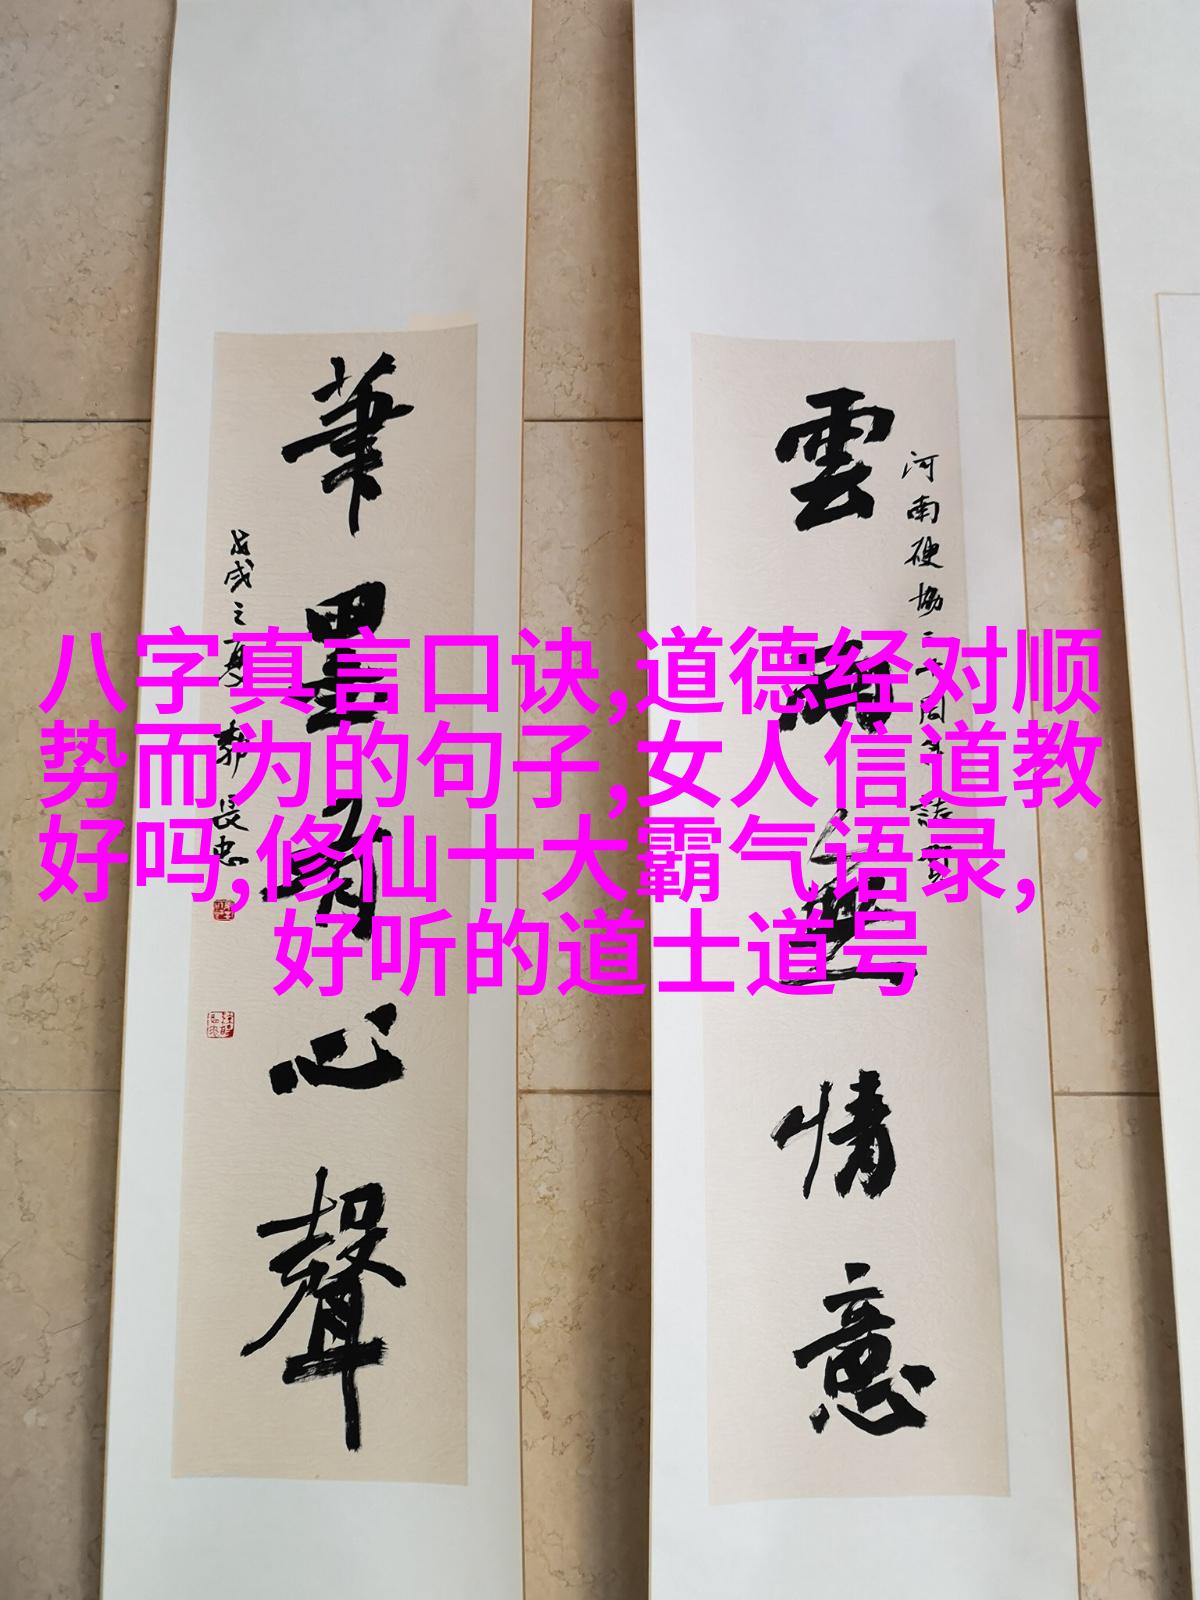 八字真言口诀,道德经对顺
势而为的句子,女人信道教
好吗,修仙十大霸气语录,
好听的道士道号
雲雨無情意
河南硬協二十周年誌賀
筆墨有心聲
戊戌之夏郭長忠